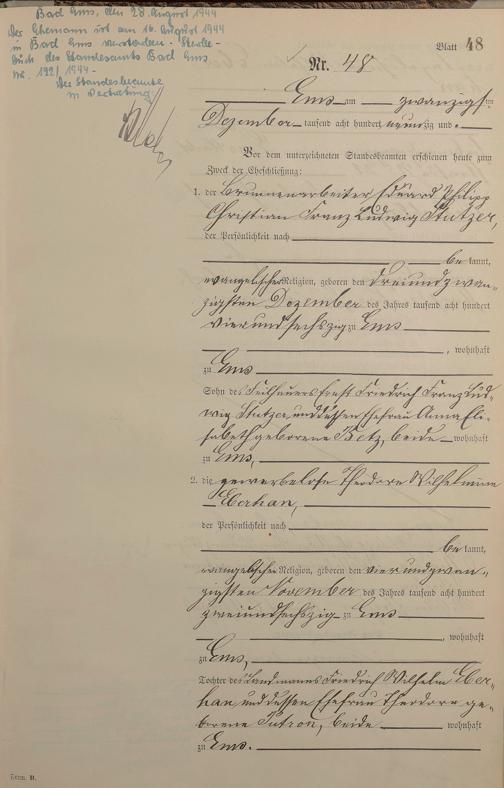 Bad Ems, den 28. August 1944
Der Ehemann ist am 16. August 1944
in Bad Ems verstorben - Sterbe-
buch des Standesamts Bad Ems
Nr. 192/1944 -
Der Standesbeamte
in Vertretung
Blatt 48
Nr. 48
Ems am zwanzigsten
Dezember tausend acht hundert neunzig und
Vor dem unterzeichneten Standesbeamten erschienen heute zum
Zweck der Eheschließung:
1. der Brunnenarbeiter Eduard Philipp
Christian Franz Ludwig Stutzer,
der Persönlichkeit nach
bekannt,
evangelischer Religion, geboren den dreiundzwan-
zigsten Dezember des Jahres tausend acht hundert
vierundsechszig zu Ems
, wohnhaft
zu Ems
Sohn des Ernst Friedrich Franz Lud-
wig Stutzer, und dessen Ehefrau Anna Eli-
sabeth geborene Betz, beide wohnhaft
zu Ems,
2. die gewerbelose Theodore Wilhelmine
Eberhan,
der Persönlichkeit nach
bekannt,
evangelischer Religion, geboren den vierundzwan-
zigsten November des Jahres tausend acht hundert
zweiundsechszig zu Ems
, wohnhaft
zu Ems,
Tochter des Landmannes Friedrich Wilhelm Eber-
han, und dessen Ehefrau Theodore ge-
borene beide wohnhaft
zu Ems.
Form. B.